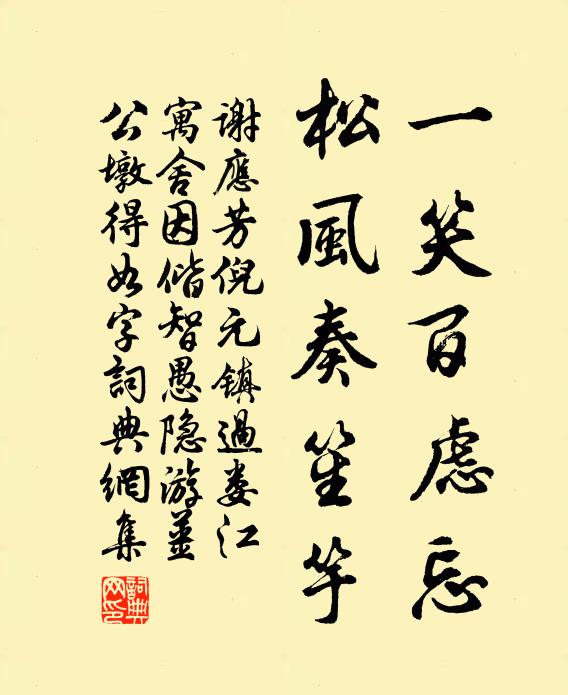 一笑百慮忘
松風奏笙竽
謝應芳倪元鎮過婁江
寓舍因偕智愚隐游姜
公墩得如字詞典網集